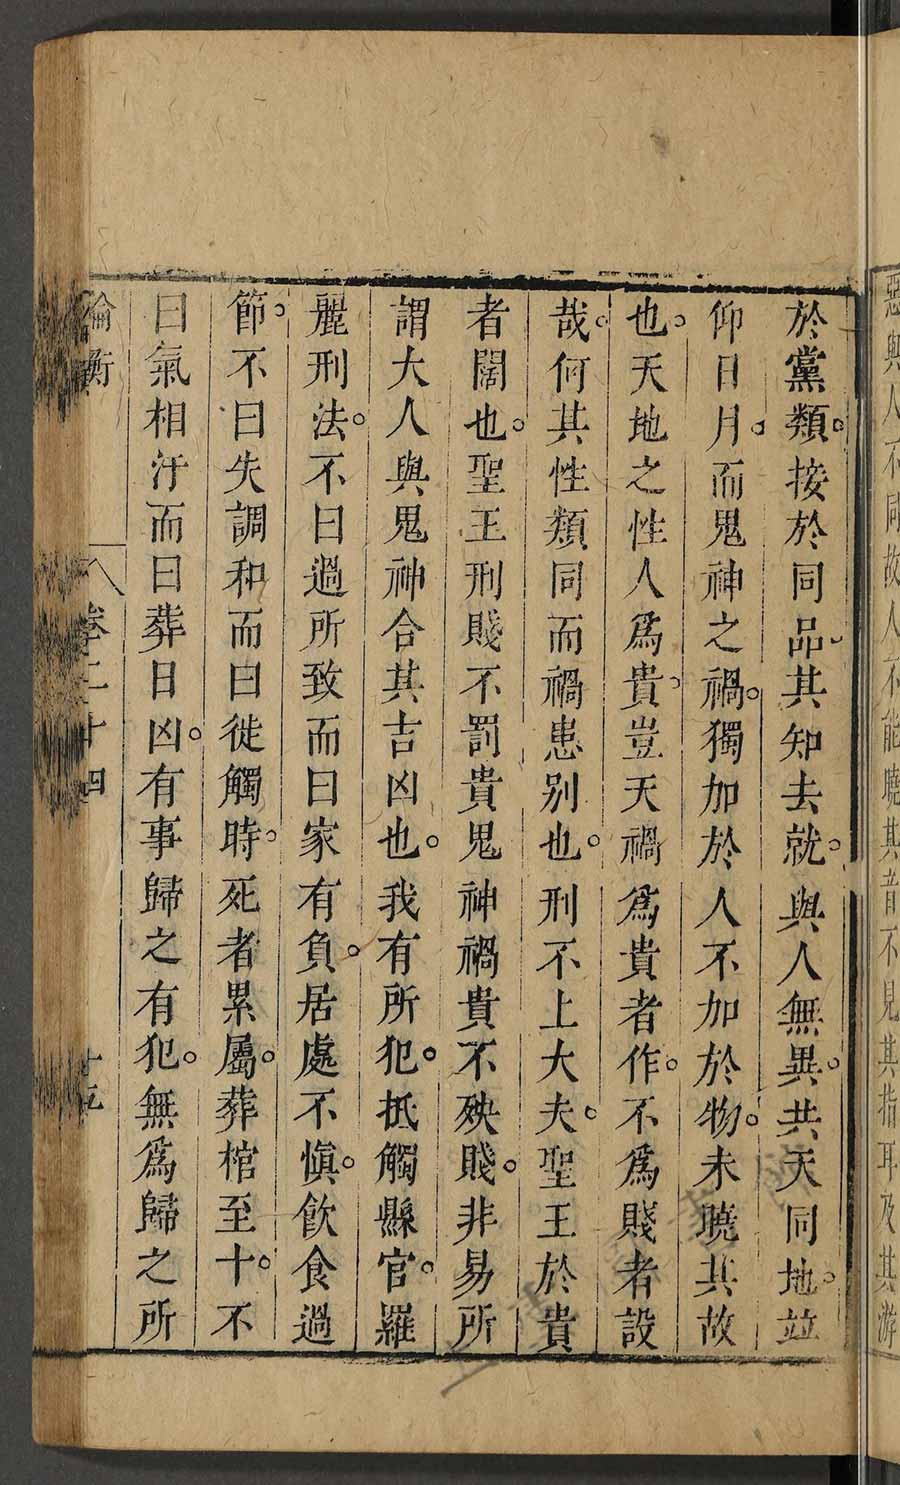 惡與人不同故人不能曉其音不見其指耳及其游
於黨類接於同品其知去就與人無異共天同地並
仰日月而鬼神之禍獨加於人不加於物未曉其故
也天地之性人爲貴豈天禍爲貴者作不爲賤者設
哉何其性類同而禍患别也刑不上大夫聖王於貴
者闊也聖王刑賤不罰貴鬼神禍貴不殃賤非易所
謂大人與鬼神合其吉凶也我有所犯抵觸縣官羅
麗刑法不曰過所致而曰家有負居處不愼飲食過
節不曰失調和而曰徙觸時死者累屬葬棺至十不
曰氣相汙而曰葬日凶有事歸之有犯無爲歸之所
論衡 卷二十四 十五